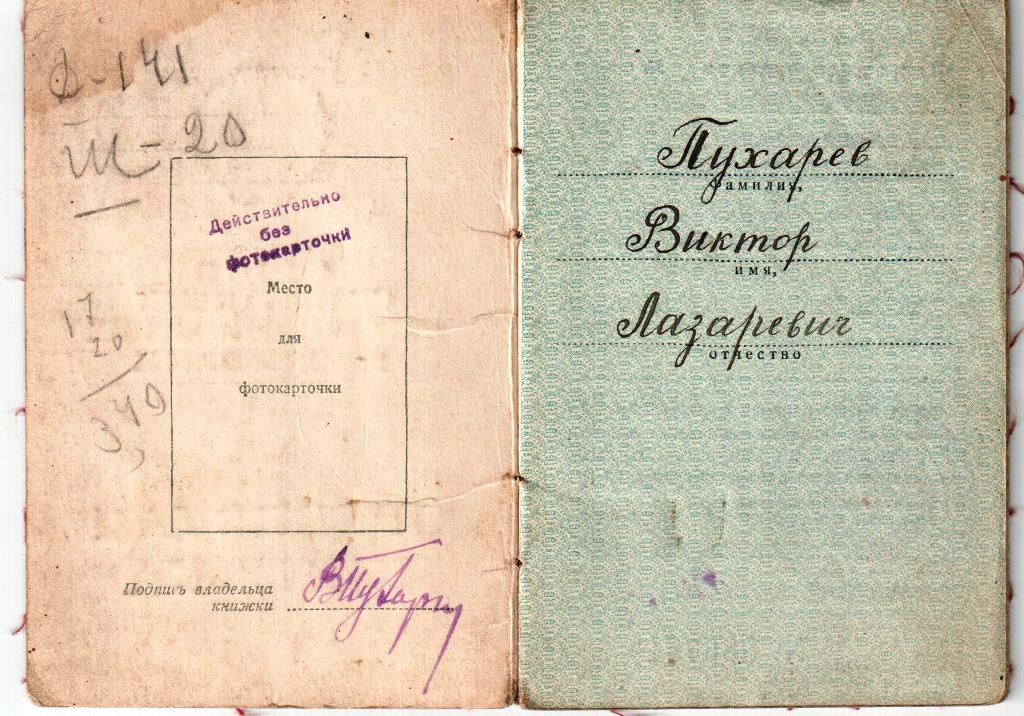 141
III - 20
Действительно
без
фотокарточки
Место
для
фотокарточки
17
20
340
Подпись владельца
книжки
Пухарев
фамилия,
Виктор
имя,
Лазаревич
отчество